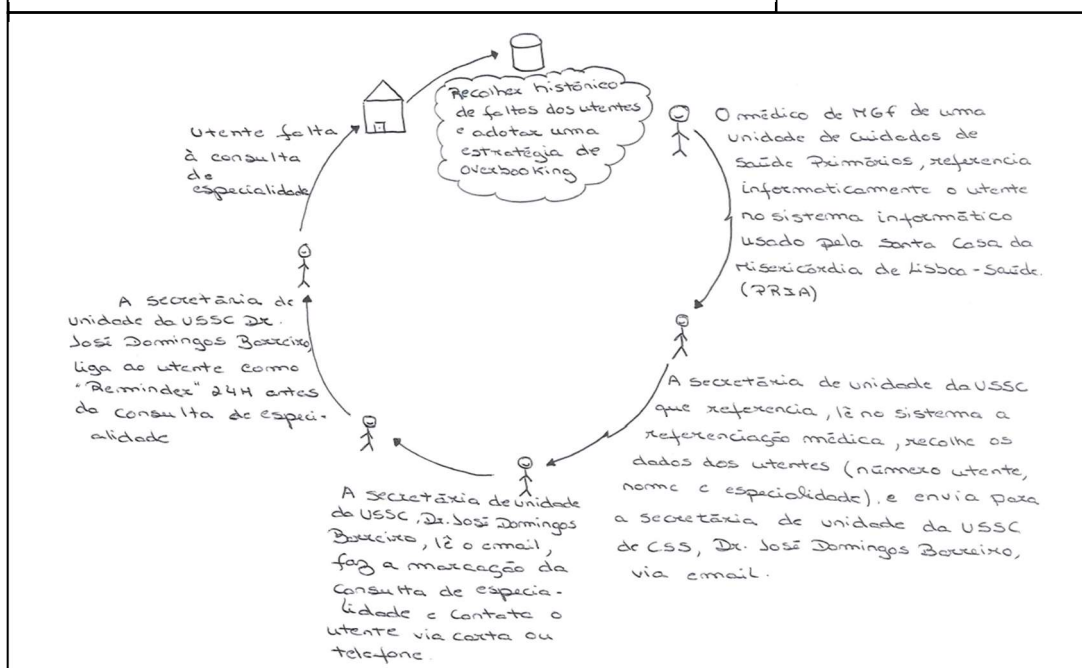 Recolher histórico
de faltas dos utentes
e adotar uma
estratégia de
overbooking
O médico de MGF de uma
unidade de cuidados de
Saúde Primários, referencia
informaticamente o utente
no sistema informático
usado pela Santa Casa da
Misericórdia de Lisboa-Saúde.
(PRIA)
A secretária de unidade da USSC
que referencia, lê no sistema a
referenciação médica, recolhe os
dados dos utentes (número utente,
nome e especialidade), e envia para
a secretária de unidade da USSC
de CSS, Dr. José Domingos Barreiro,
via email.
A secretária de unidade
da USSC, Dr. José Domingos
Barreiro, lê o email,
faz a marcação da
consulta de especia-
lidade e contata o
utente via carta ou
telefone.
A secretária de
unidade da USSC Dr.
José Domingos Barreiro,
liga ao utente como
"Reminder" 24H antes
da consulta de especi-
alidade
Utente falta
à consulta
de
especialidade